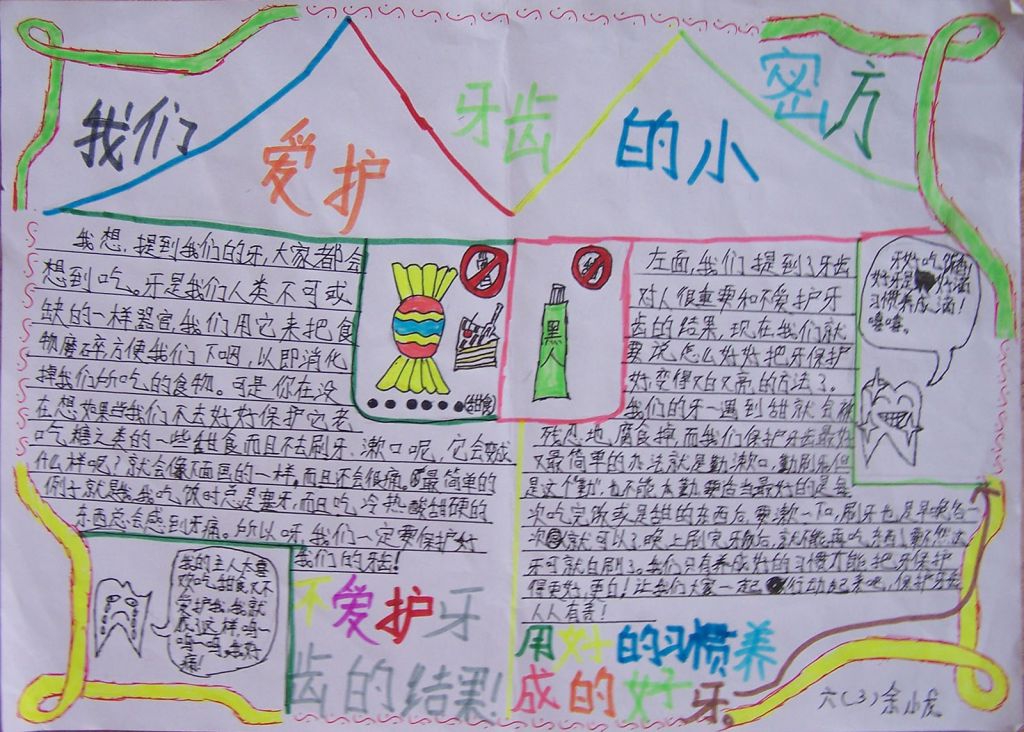 我们爱护牙齿的小密方
我想,提到我们的牙,大家都会
想到吃。牙是我们人类不可或
缺的一样器官,我们用它来把食
物磨碎,方便我们下咽,以即消化
掉我们所吃的食物。可是你在没
在想如果当我们不去好好保护它老
吃糖之类的一些甜食而且不去刷牙、漱口呢,它会变成
什么样呢?就会像下面画的一样。而且还会很痛。最简单的
例子就是我,我吃饭时总是塞牙,而且吃冷热酸甜硬的
东西总会感到牙痛。所以呀,我们一定要保护好
我们的牙齿!
(甜食)
黑人
左面,我们提到了牙齿
对人很重要和不爱护牙
齿的结果,现在我们就
要说怎么好好把牙保护
好变得又白又亮的方法了。
我们的牙一遇到甜就会被
残忍地腐食掉,而我们保护牙齿最好
又最简单的办法就是勤漱口,勤刷牙但
是这个勤,也不能太勤要恰当最好的是每
次吃完饭或是甜的东西后,要漱一下口,刷牙也是早晚各一
次就可以了晚上刷完牙后,就不能再吃东西了
牙可就白刷了。我们只有养成好的习惯才能把牙保护
得更好,更白!让我们大家一起行动起来吧,保护牙齿
人人有责!
牙好吃饭
好牙是
习惯养成滴!
嘻嘻。
我的主人太喜
欢吃甜食又不
爱护我,我就
成了这样,呜一
呜一呜,我好
痛!
不爱护牙
齿的结果!
用好的习惯养
成的好牙。
六(3)余小虎